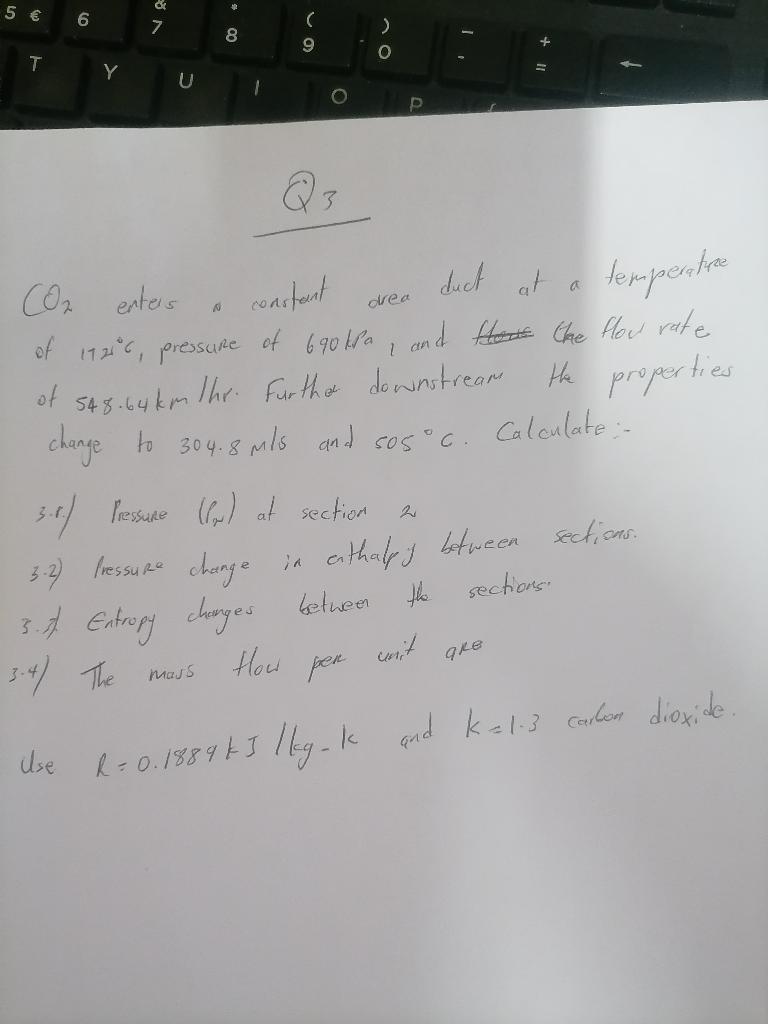 5 € 6 & 7 * 8 ( 9 ) 0 - + =
T Y U I O P
Q3
CO2 enters a constant area duct at a temperature
of °C, pressure of 690 kPa, and the flow rate
of 548.64 km/hr. Further downstream the properties
change to 304.8 m/s and 505°C. Calculate:-
3.1) Pressure at section 2
3.2) Pressure change in enthalpy between sections.
3.3) Entropy changes between the sections.
3.4) The mass flow per unit are
Use R=0.1889 kJ/kg-k and k=1.3 carbon dioxide.